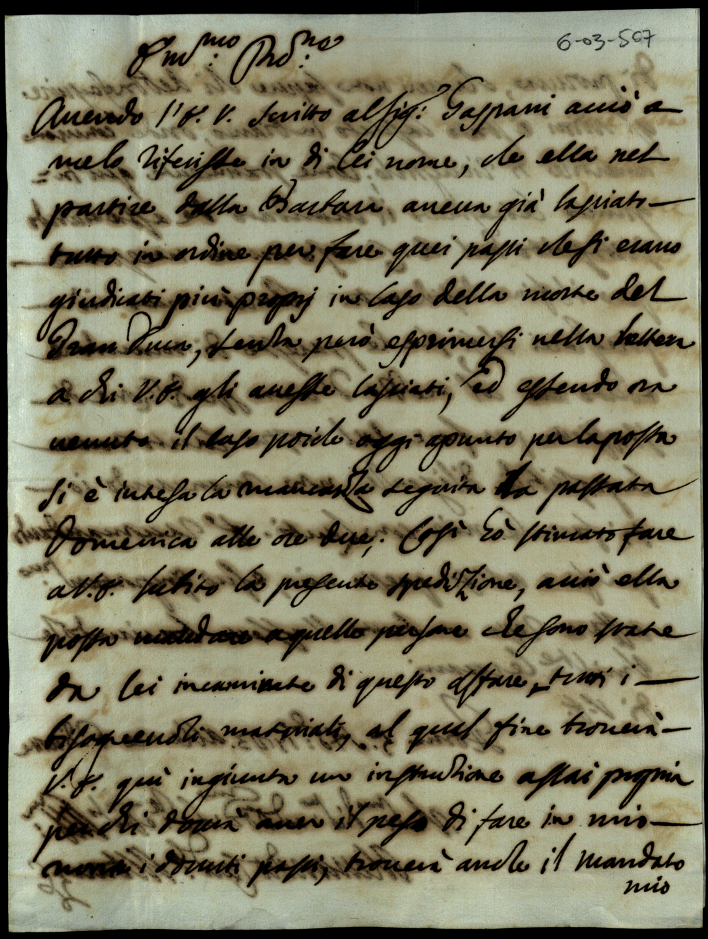 6-03-507
Ill.mo Pró.ne
Avendo l'A. V. scritto al Sig.r Gaspari acciò a
me lo riferisse in di lei nome, che ella nel
partire dalla Barbara aveva già lasciato
tutto in ordine per fare quei passi che si erano
giudicati più proprj in caso della morte del
Gran Duca, senza però esprimersi nella lettera
a chi V.A. gli avesse lasciati, ed essendo ora
venuto il caso poiche oggi apunto per la posta
si è intesa la mancanza seguita la passata
Domenica alle ore due; Così hò stimato fare
a V.A. subito la presente spedizione, acciò ella
possa mandare a quelle persone che sono state
da lei incaminate di questo affare, tutti i
bisognevoli materiali, al qual fine troverà
V.A. quì ingiunta un instruzione assai propria
per chi dovrà aver il peso di fare in mio
nome i dovuti passi, troverà anche il mandato
mio